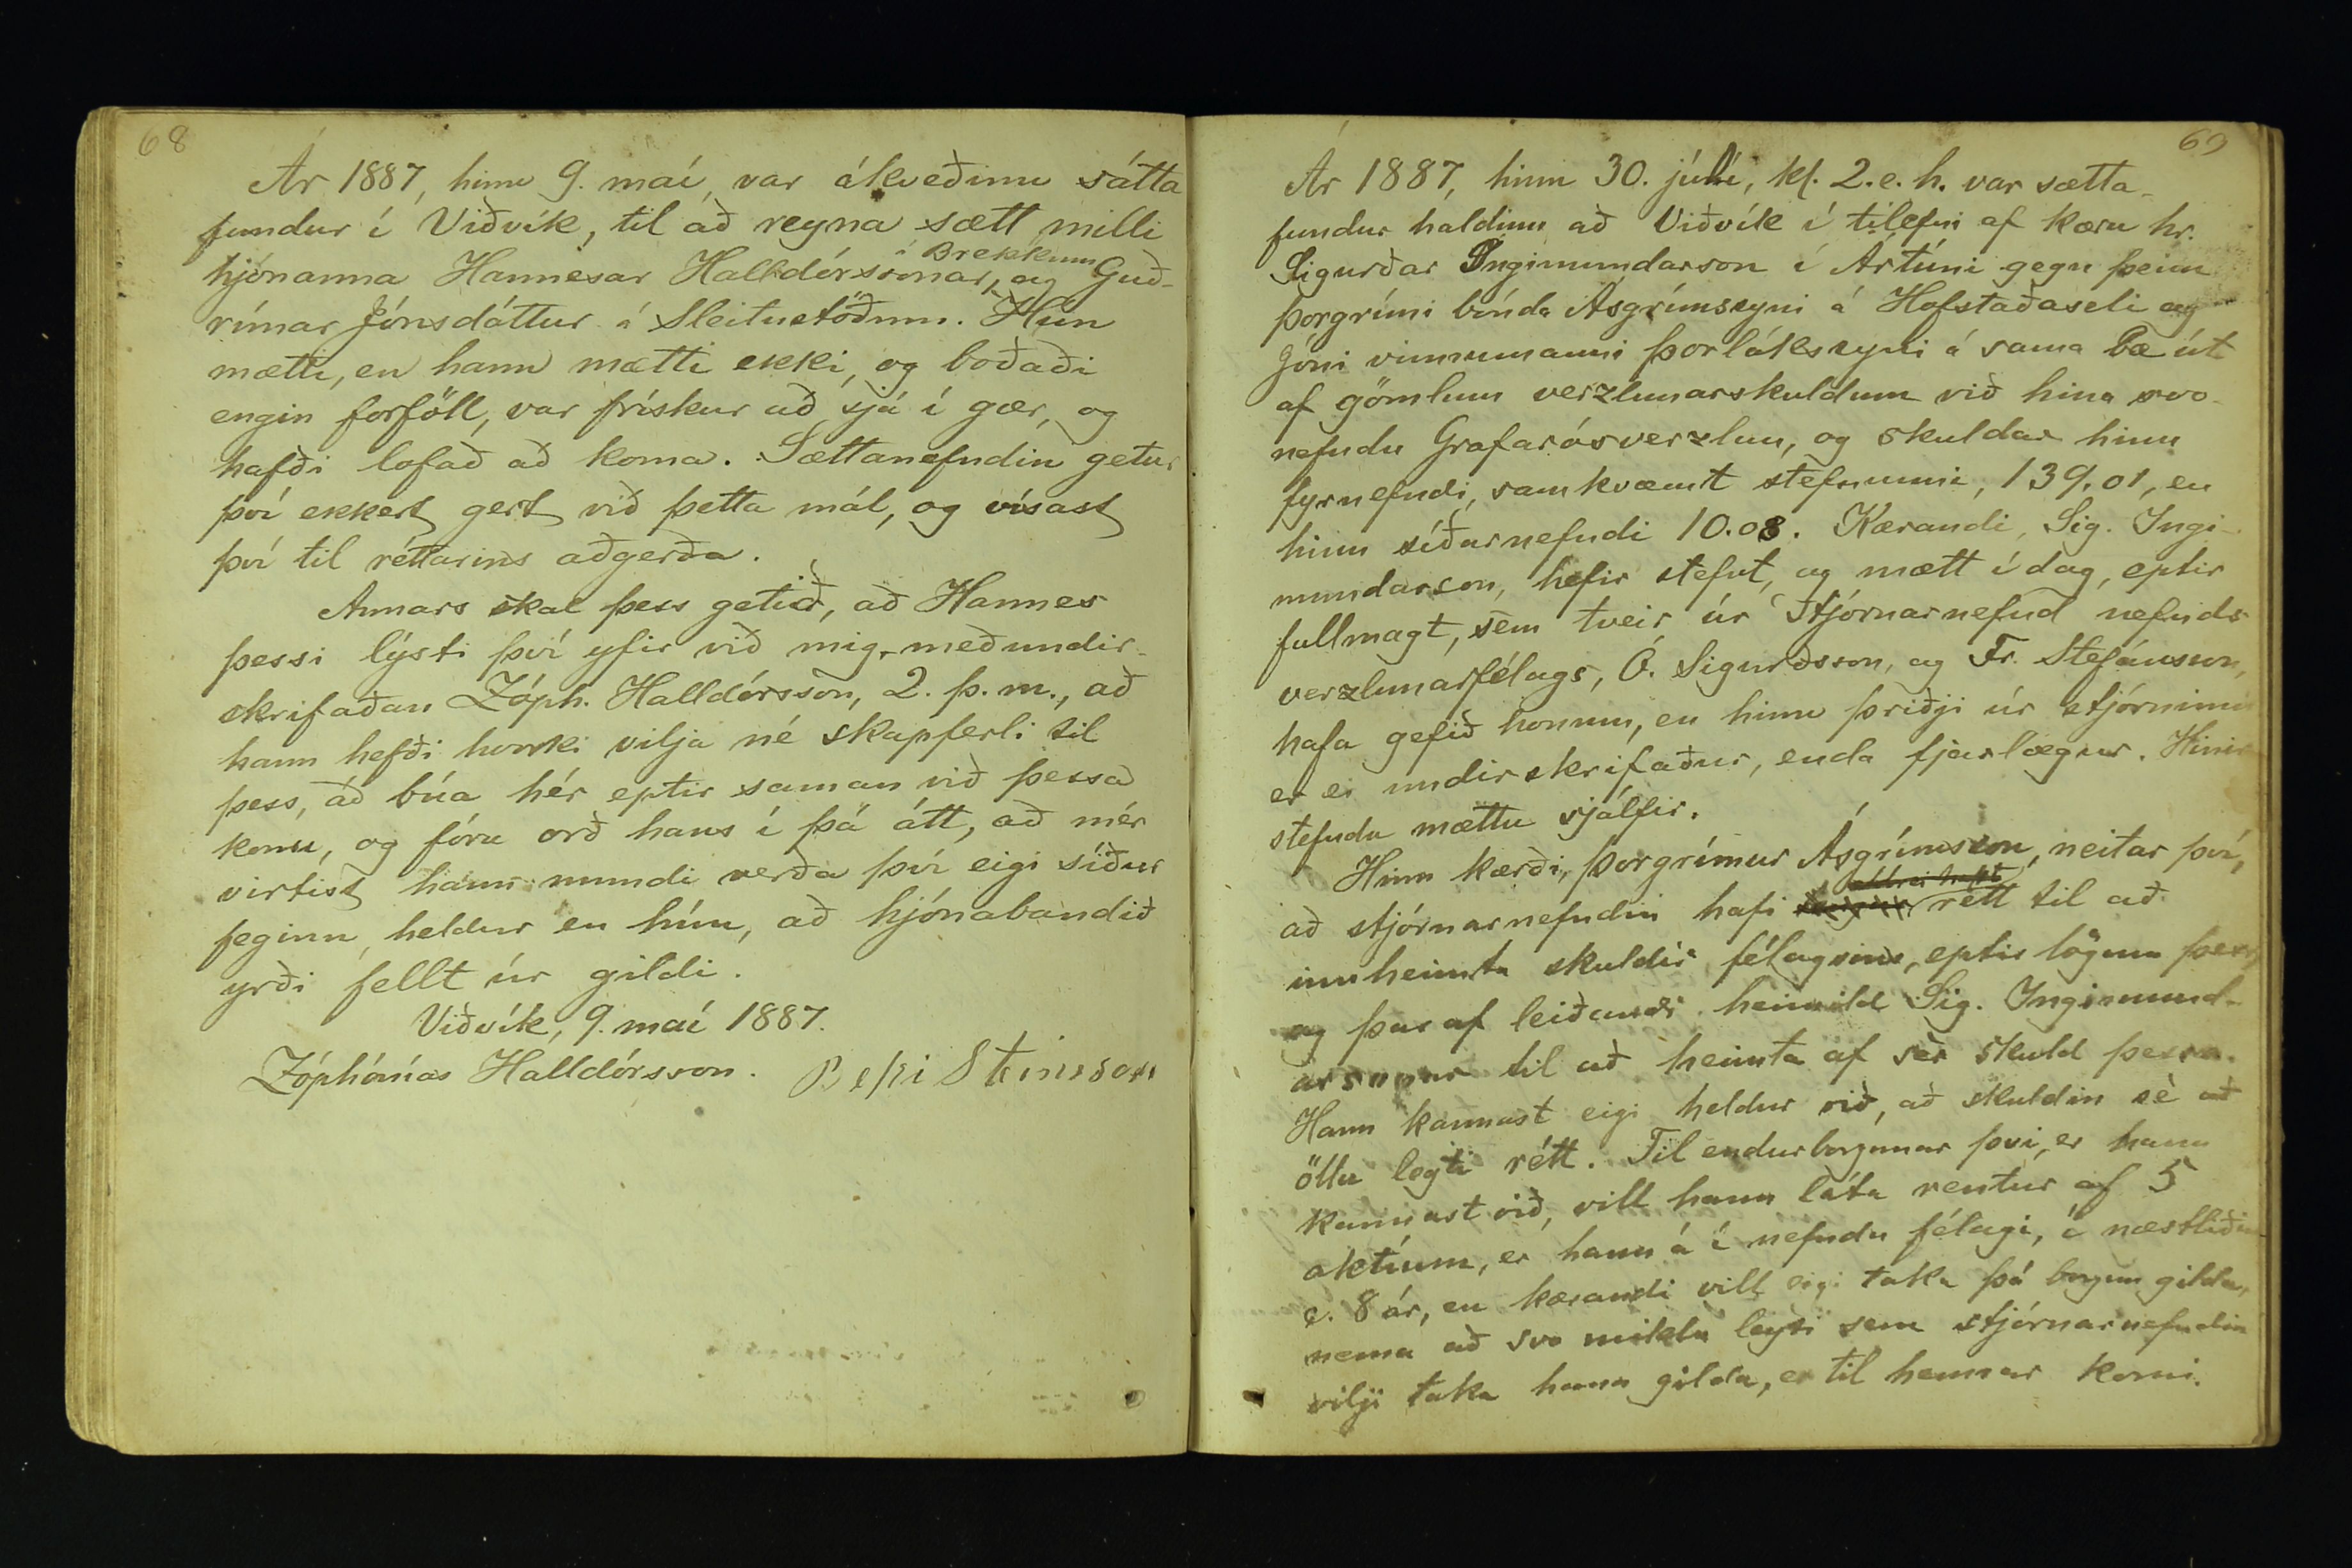 68
Ár 1887, hinn 9. maí, var ákveðinn sátta
fundur í Viðvík, til að reyna sætt milli
hjónanna Hannesar Halldórssonar, í Brekkum og Guð-
rímar Jónsdóttur á Sleitustöðum. Hún
mætti, en hann mætti ekki, og boðaði
engin forföll, var frískur að sjá í gær, og
hafði lofað að koma. Sættanefndin getur
því ekkert gert við þetta mál, og vísast
því til réttarins aðgerða.
Annars skal þess getið, að Hannes
þessi lýsti því yfir við mig, meðundir-
skrifaðan Zóph. Halldórsson, 2. þ. m., að
hann hefði hvorki vilja né skapferli til
þess, að búa hér eptir saman við þessa
konu, og fóru orð hans í þá átt, að mér
virtist hann mundi verða því eigi síður
feginn, heldur en hún, að hjónabandið
yrði fellt úr gildi.
Viðvík, 9. maí 1887.
Zóphónías Halldórsson. Bessi Steinsson
69
Ár 1887, hinn 30. júlí, kl. 2. e. h. var sætta-
fundur haldinn að Viðvík í tilefni af kæru hr.
Sigurðar Ingimundarson í Ártúni gegn þeim
Þorgrími bónda Ásgrímssyni á Hofstaðaseli og
Jóni vinnumanni Þorlákssyni á sama bæ út
af gömlum verzlunarskuldum við hina svo-
nefndu Grafarósverzlun, og skuldar hinn
fyrnefndi, samkvæmt stefnunni, 139,01, en
hinn síðarnefndi 10.08. Kærandi, Sig. Ingi-
mundarson, hefir stefnt, og mætt í dag, eptir
fullmagt, sem tveir úr stjórnarnefnd nefnds
verzlunarfélags, Ó. Sigurðsson, og Fr. Stefánsson,
hafa gefið honum, en hinn þriðji úr stjórninni
er ei undirskrifaður, enda fjarlægur. Hinir
stefndu mættu sjálfir.
Hinn kærði, Þorgrímur Ásgrímsson, neitar því,
að stjórnarnefndin hafi aldrei haft rétt til að
innheimta skuldir félagsins, eptir lögum þess,
og þar af leiðandi heimild Sig. Ingimund-
arsonar til að heimta af sér skuld þessa.
Hann kannast eigi heldur við, að skuldin sé að
öllu leyti rétt. Til endurborgunar því, er hann
kannast við, vill hann láta rentur af 5
aktíum, er hann á í nefndu félagi, á næstliðin
c. 8 ár, en kærandi vill eigi taka þá borgun gilda,
nema að svo miklu leyti sem stjórnarnefndin
vilji taka hana gilda, er til hennar komi.